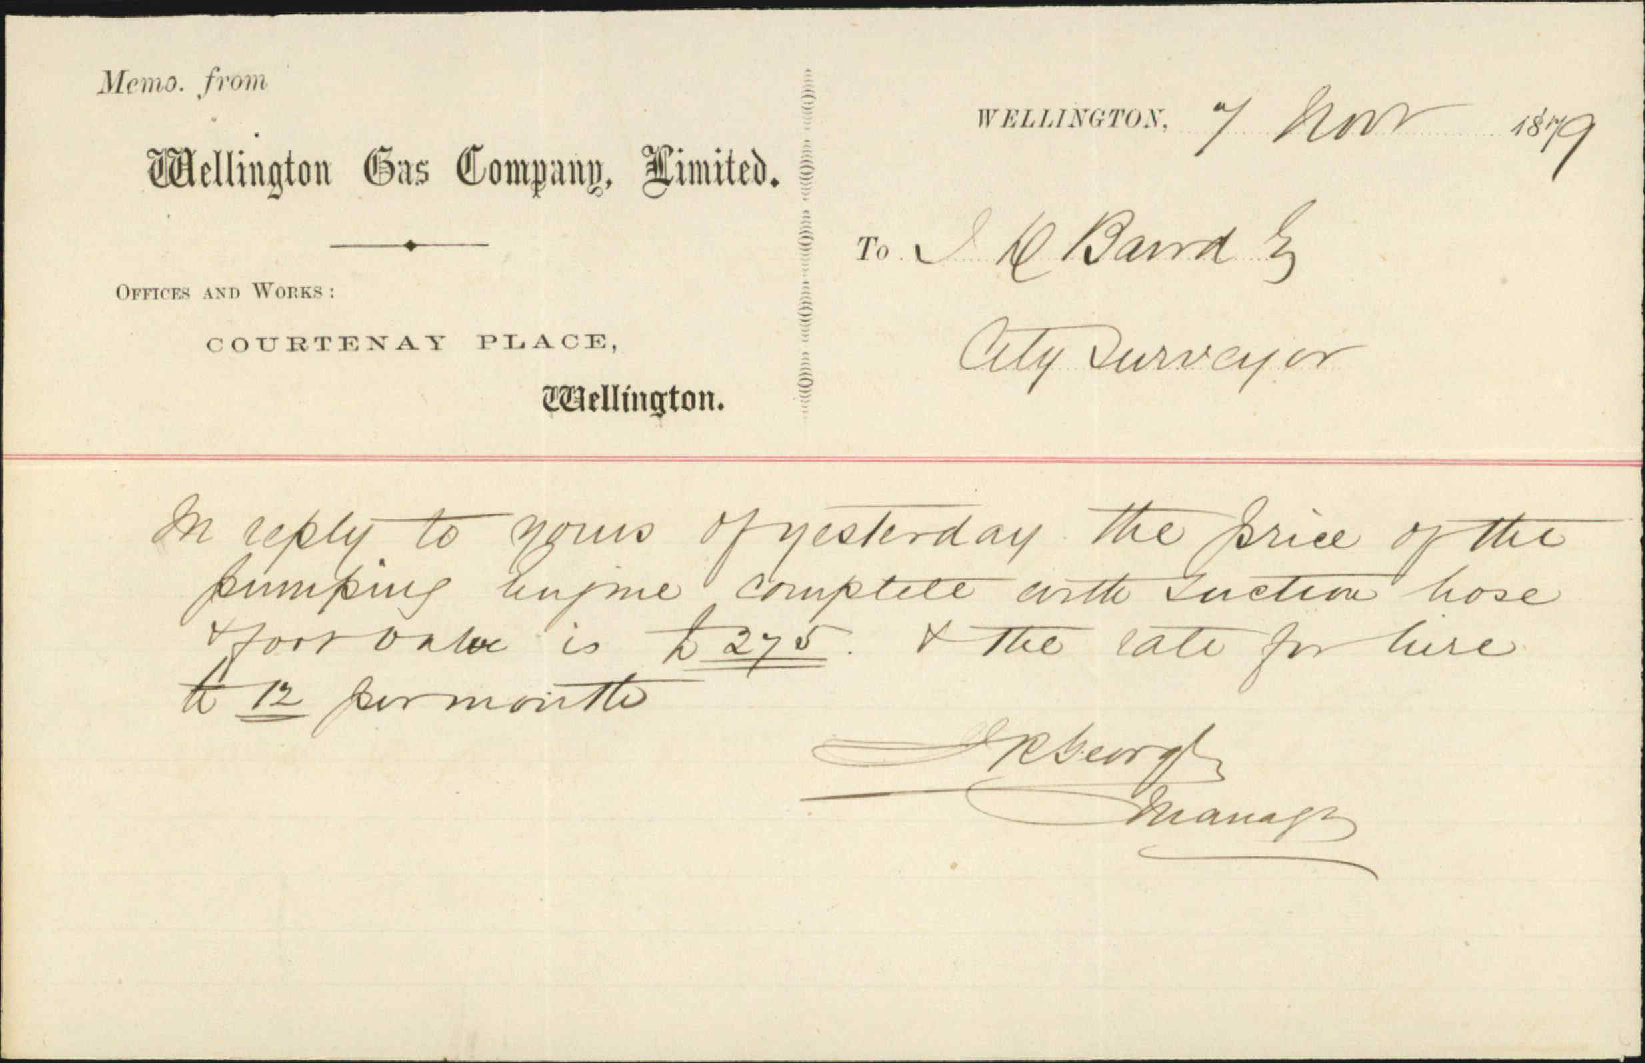 Memo. from
Wellington Gas Company, Limited.
OFFICES AND WORKS:
COURTENAY PLACE,
Wellington.
WELLINGTON, 7 Novr 1879
To J D Baird Esq
City Surveyor
In reply to yours of yesterday the price of the
pumping Engine complete with suction hose
& foot valve is £275. & the rate for hire
£12 per month
J R George
Manager